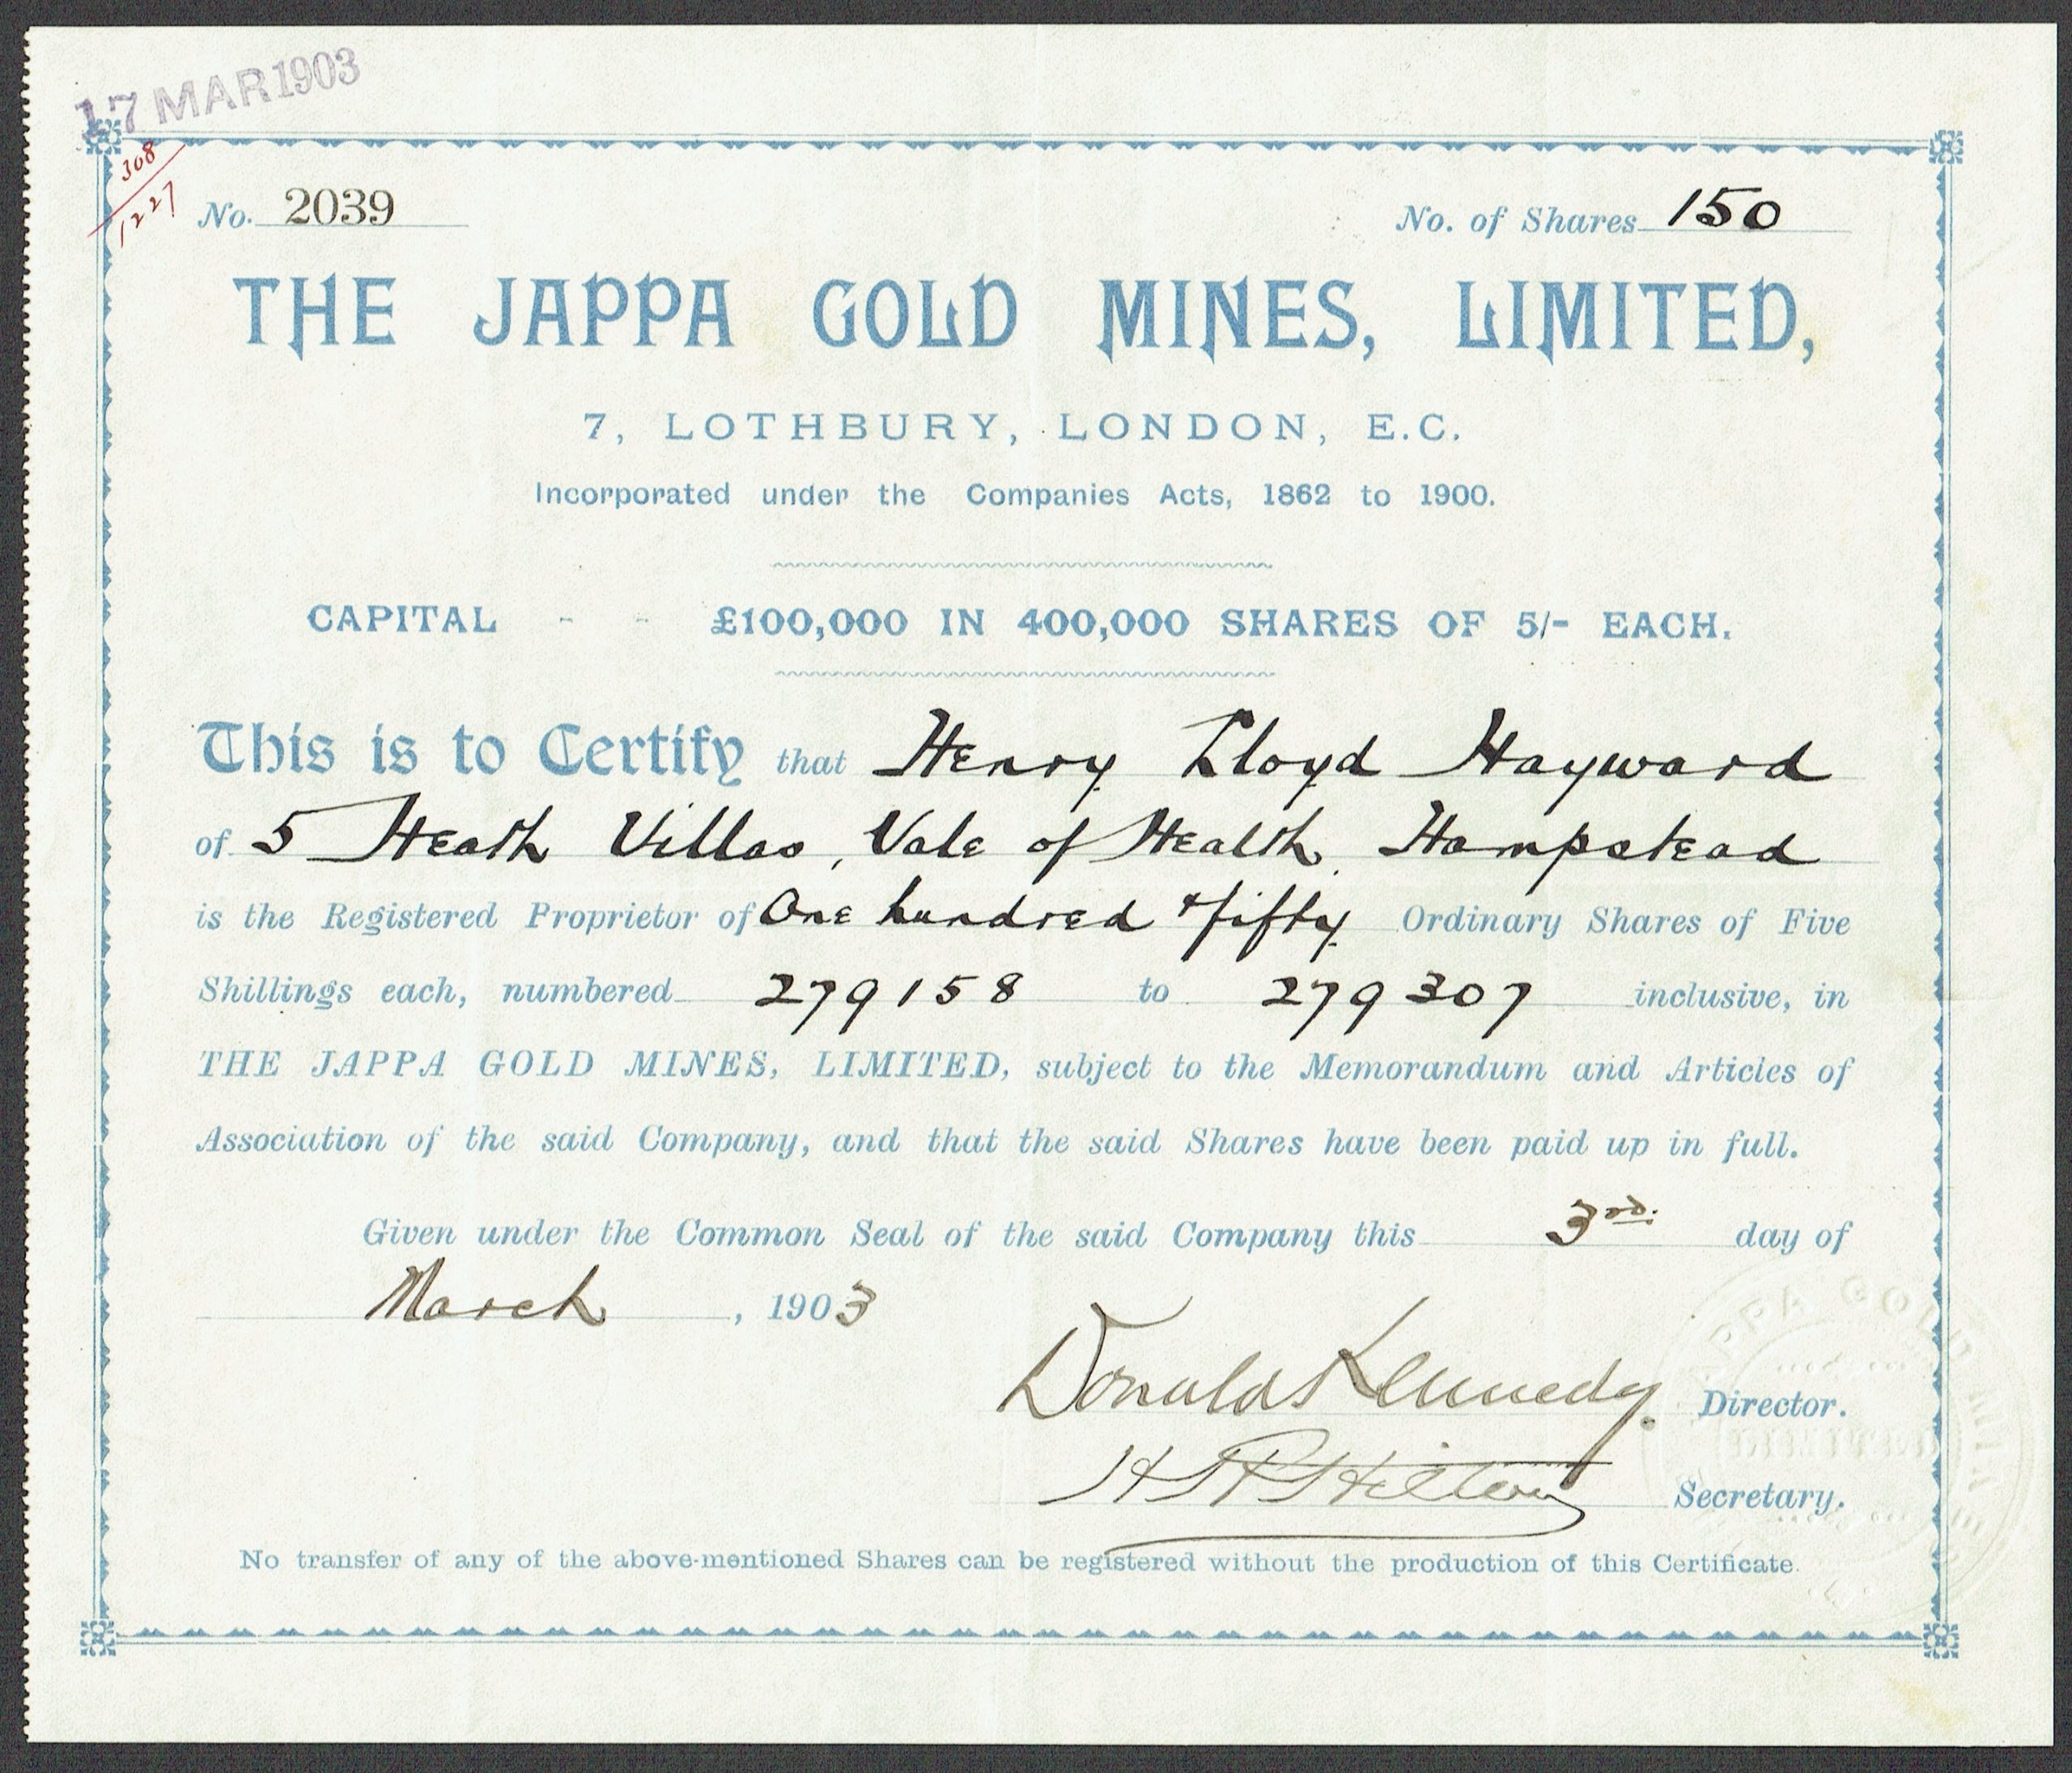 17 MAR 1903
308
1227
No. 2039
No. of Shares 150
THE JAPPA GOLD MINES, LIMITED,
7, LOTHBURY, LONDON, E.C.
Incorporated under the Companies Acts, 1862 to 1900.
CAPITAL - - £100,000 IN 400,000 SHARES OF 5/- EACH.
This is to Certify that Henry Lloyd Hayward
of 5 Heath Villas, Vale of Health, Hampstead
is the Registered Proprietor of One hundred & fifty Ordinary Shares of Five
Shillings each, numbered 279158 to 279307 inclusive, in
THE JAPPA GOLD MINES, LIMITED, subject to the Memorandum and Articles of
Association of the said Company, and that the said Shares have been paid up in full.
Given under the Common Seal of the said Company this 3rd. day of
March, 1903
Donald Kennedy Director.
Secretary.
JAPPA GOLD MINES
No transfer of any of the above-mentioned Shares can be registered without the production of this Certificate.